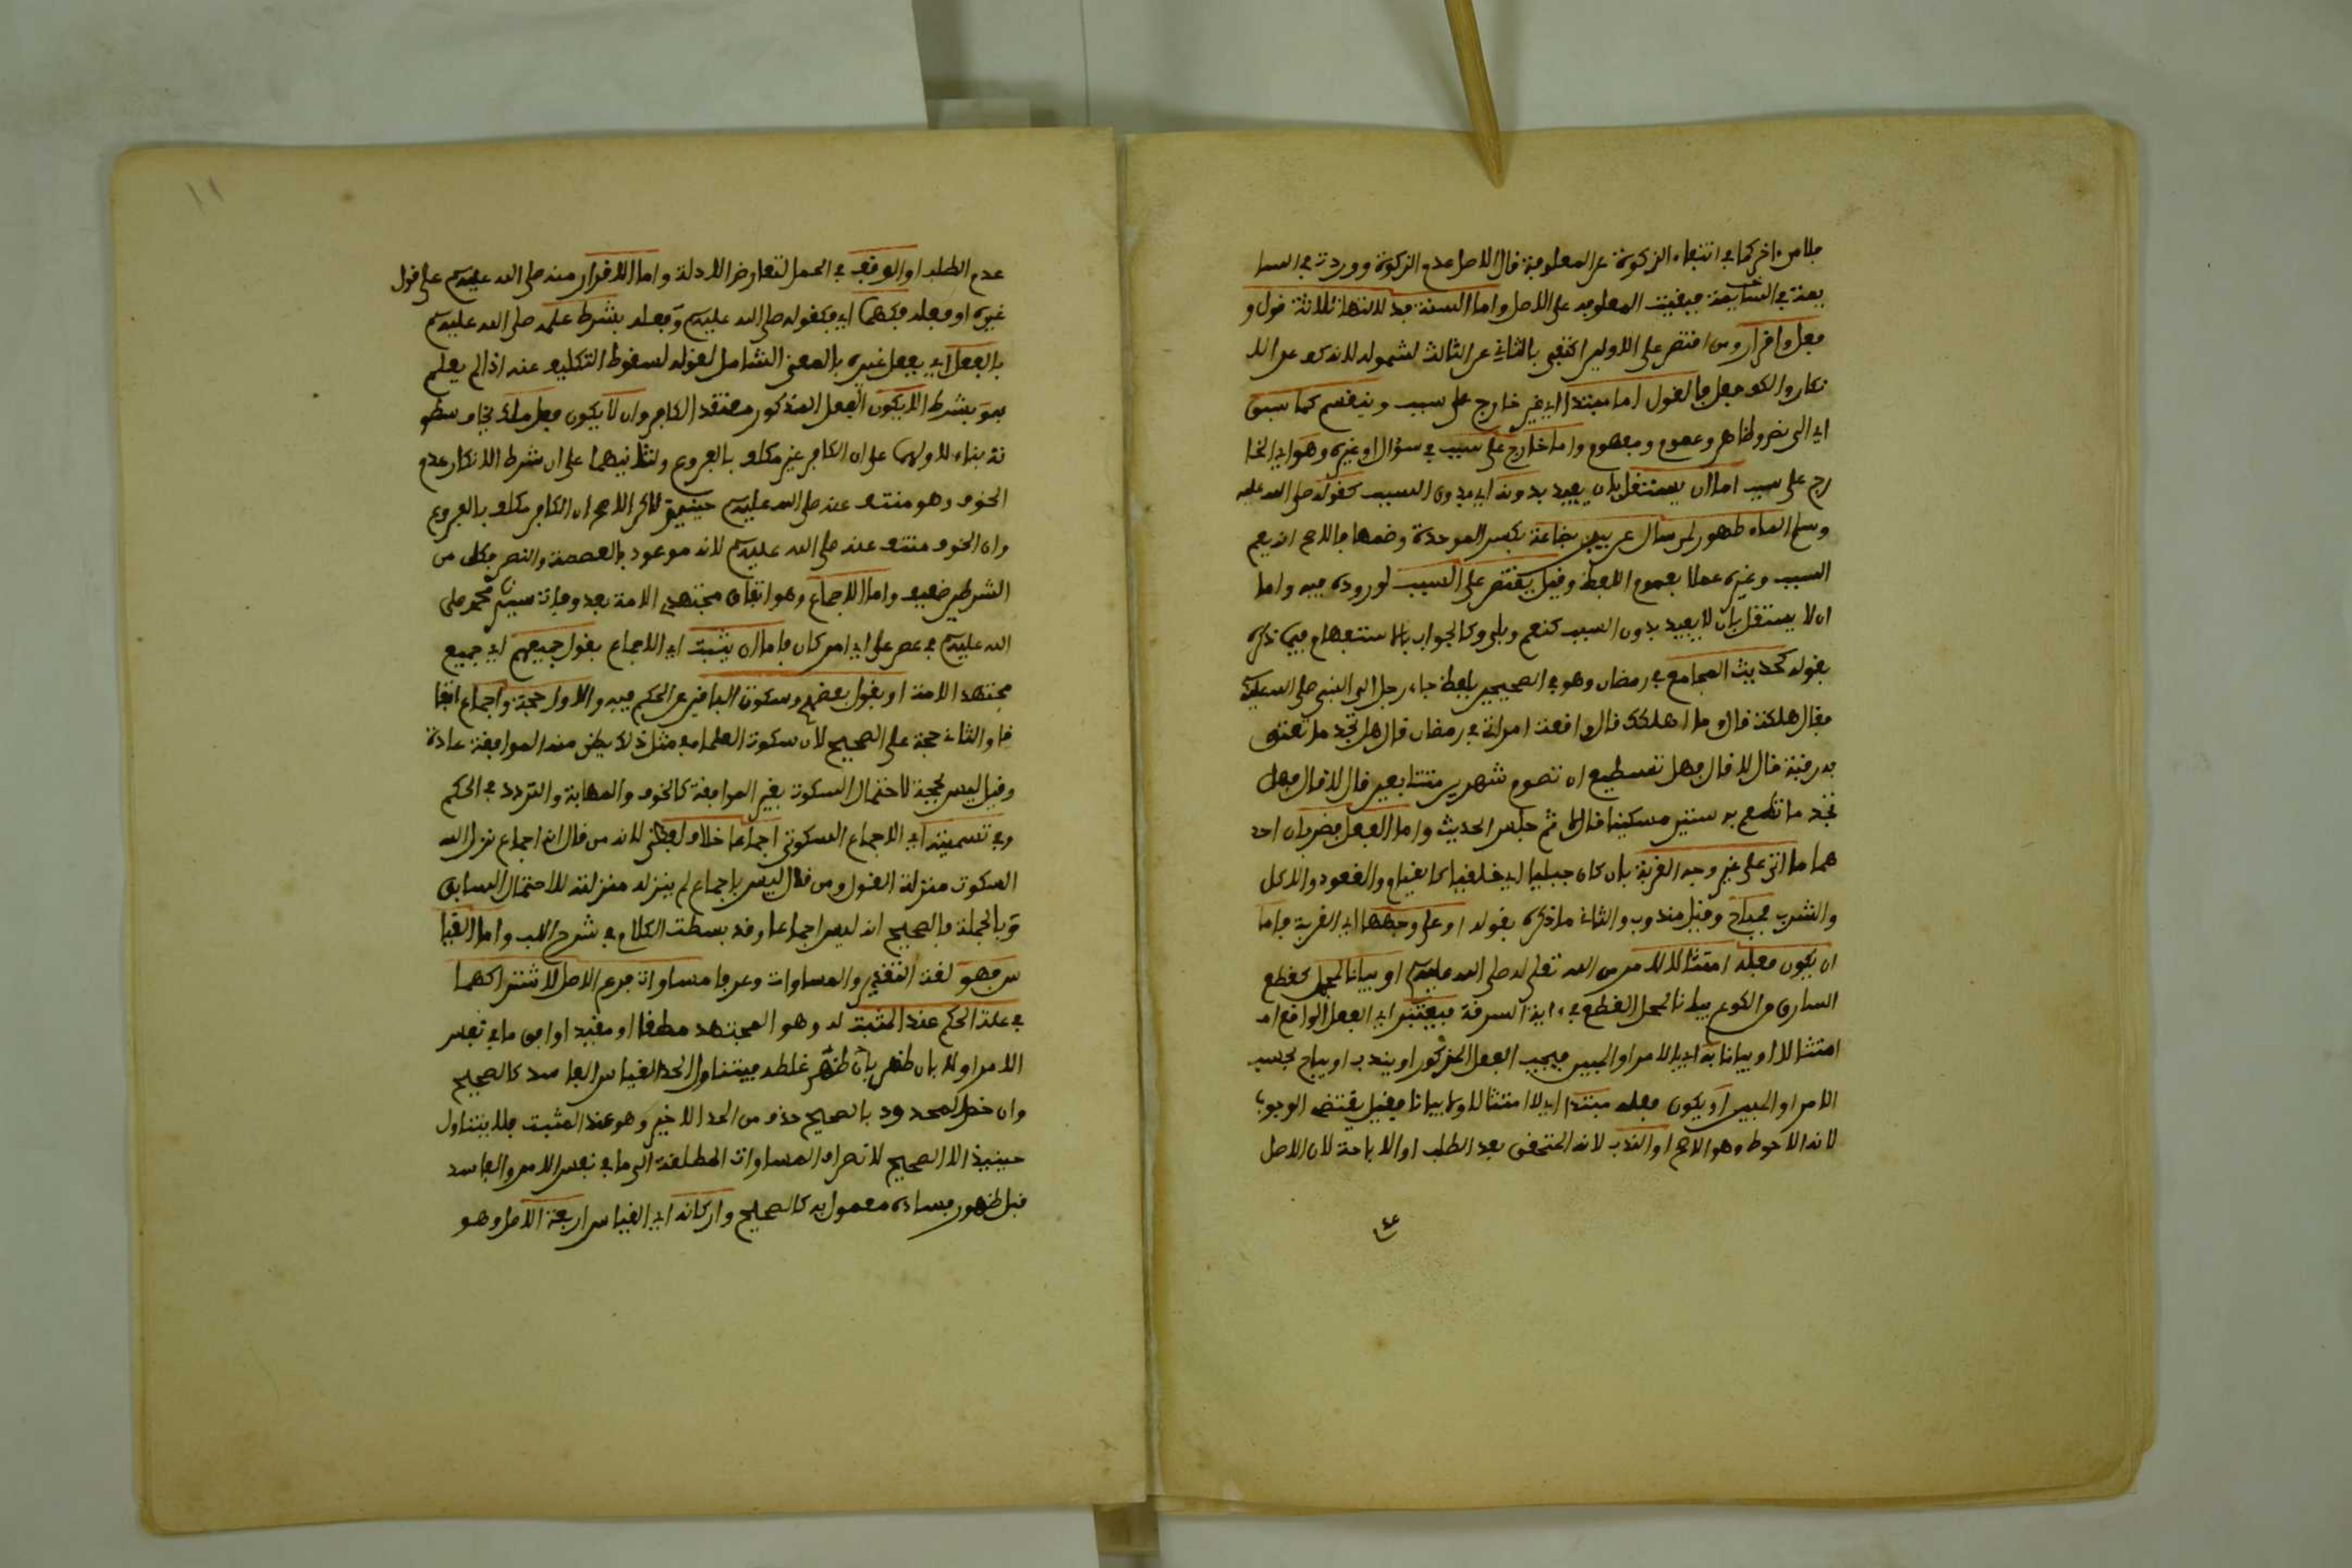 فلا من ءاخر كما في انتفاء الزكوة عن المعلوفة فان الاصل عدم الزكوة ووردت في السا
يمة في السايمة فبقيت المعلوفة على الاصل واما السنة فد لالتها ثلاثة قول و
فعل واقرار ومن اقتصر على الاولين اكتفى بالثاني عن الثالث لشموله لانه كف عن الا
نكار والكف فعل فالقول اما مبتدا اي غير خارج على سبب وينقسم كما سبق
اي الى نص وظاهر وعموم ومفهوم واما خارج على سبب في سؤال او غيره وهو اي الخا
رج على سبب اما ان يستقل بان يفيد بدونه اي بدون السبب كقوله صلى الله عليه
وسلم الماء طهور لمن سال عن بير بضاعة بكسر الموحدة وضمها فالاصح انه يعم
السبب وغيره عملا بعموم اللفظ وقيل يقتصر على السبب لوروده فيه واما
ان لا يستقل بان لا يفيد بدون السبب كنعم وبلى وكالجواب بالاستفهام فيما ذكره
بقوله كحديث المجامع في رمضان وهو في الصحيحين بلفظ جاء رجل الى النبي صلى الله عليه
فقال هلكت قال وما اهلكك قال واقعت امراتي في رمضان قال هل تجد ما تعتق
به رقبة قال لا قال فهل تستطيع ان تصوم شهرين متتابعين قال لا قال فهل
تجد ما تطعم به ستين مسكينا قال لا ثم جلس الحديث واما الفعل فضربان احد
هما ما اتى على غير وجه القربة بان كان جبليا اي خلقيا كالقيام والقعود والاكل
والشرب فمباح وقيل مندوب والثاني ما ذكره بقوله او على وجهها اي القربة فاما
ان يكون فعله امتثالا لامر من الله تعلى له صلى الله عليه وسلم او بيانا لمجمل كقطع
السارق من الكوع بيانا لمحل القطع في ءاية السرقة فيعتبر اي الفعل الواقع ا
امتثالا او بيانا به اي بالامر او المبين فيجب الفعل المذكور او يندب او يباح بحسب
الامر او المبين او يكون فعله مبتدا اي لا امتثالا ولا بيانا فقيل يقتضي الوجوب
لانه الاحوط وهو الاصح او الندب لانه المتحقق بعد الطلب او الاباحة لان الاصل
عدم الطلب او الوقف في الحمل لتعارض الادلة واما الاقرار منه صلى الله عليه وسلم على قول
غيره او فعله فكهما اي فكقوله صلى الله عليه وسلم وفعله بشرط علمه صلى الله عليه وسلم
بالفعل اي بفعل غيره بالمعنى الشامل لقوله لسقوط التكليف عنه اذا لم يعلم
به وبشرط الا يكون الفعل المذكور معتقد الكافر وان لا يكون فعل ملك يخاف سطو
ته بناء للاول على ان الكافر غير مكلف بالفروع ولثانيهما على ان شرط الانكار عدم
الخوف وهو منتف عنه صلى الله عليه وسلم حينئذ لاكن الاصح ان الكافر مكلف بالفروع
وان الخوف منتف عنه صلى الله عليه وسلم لانه موعود بالعصمة والنصر فكل من
الشرطين ضعيف واما الاجماع وهو اتفاق مجتهدي الامة بعد وفاة سيدنا محمد صلى
الله عليه وسلم في عصر على اي امر كان فاما ان يثبت اي الاجماع بقول جميعهم اي جميع
مجتهد الامة او بقول بعضهم وسكوت الباقين عن الحكم فيه والاول حجة واجماع اتفا
قا والثاني حجة على الصحيح لان سكوت العلما في مثل ذلك يظن منه الموافقة عادة
وقيل ليس بحجة لاحتمال السكوت بغير الموافقة كالخوف والمهابة والتردد في الحكم
وفي تسميته اي الاجماع السكوتي اجماعا خلاف لفظي لانه من قال انه اجماع نزل الله
السكوت منزلة القول ومن قال ليس باجماع لم ينزله منزلته للاحتمال السابق
وبالجملة فالصحيح انه ليس اجماعا وقد بسطت الكلام في شرح اللب واما القيا
س فهو لغة التقدير والمساوات وعرفا مساواة فرع الاصل لاشتراكهما
في علة الحكم عند المثبت له وهو المجتهد مطلقا او مقيد اوافق ما في نفس
الامر اولا بان ظهر بان ظهر غلطه فيتناول الحد القياس الفاسد كالصحيح
وان خص المحدود بالصحيح حذف من الحد الاخير وهو عند المثبت فلا يتناول
حينيذ الا الصحيح لانصراف المساوات المطلقة الى ما في نفس الامر والفاسد
قبل ظهور فساده معمول به كالصحيح واركانه اي القياس اربعة الاصل وهو